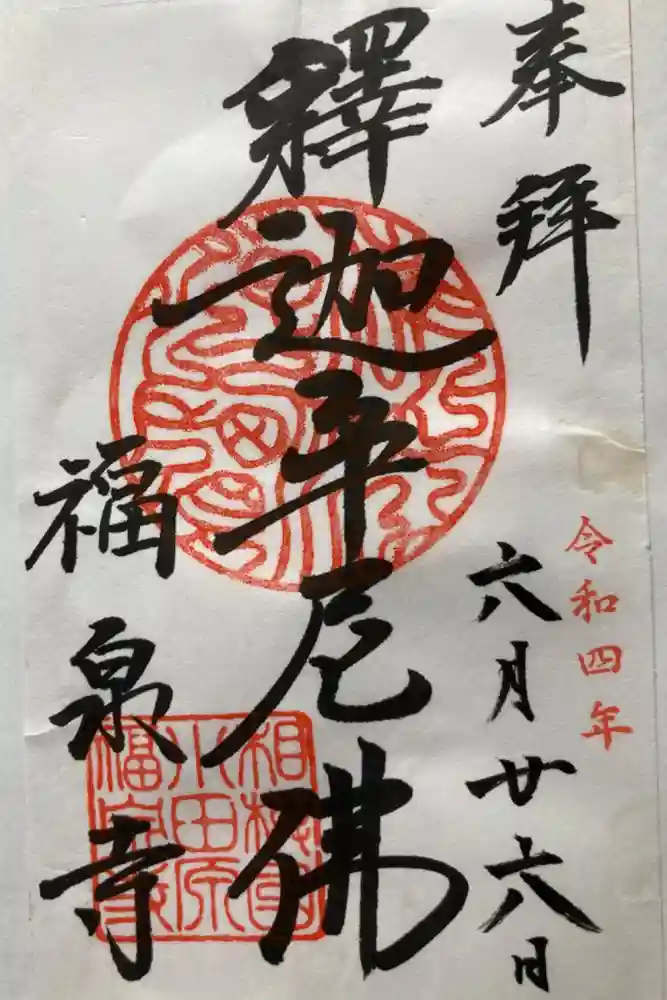 奉拝
令和四年
六月廿六日
釋迦牟尼佛
福泉寺
相模國
小田原
福泉寺